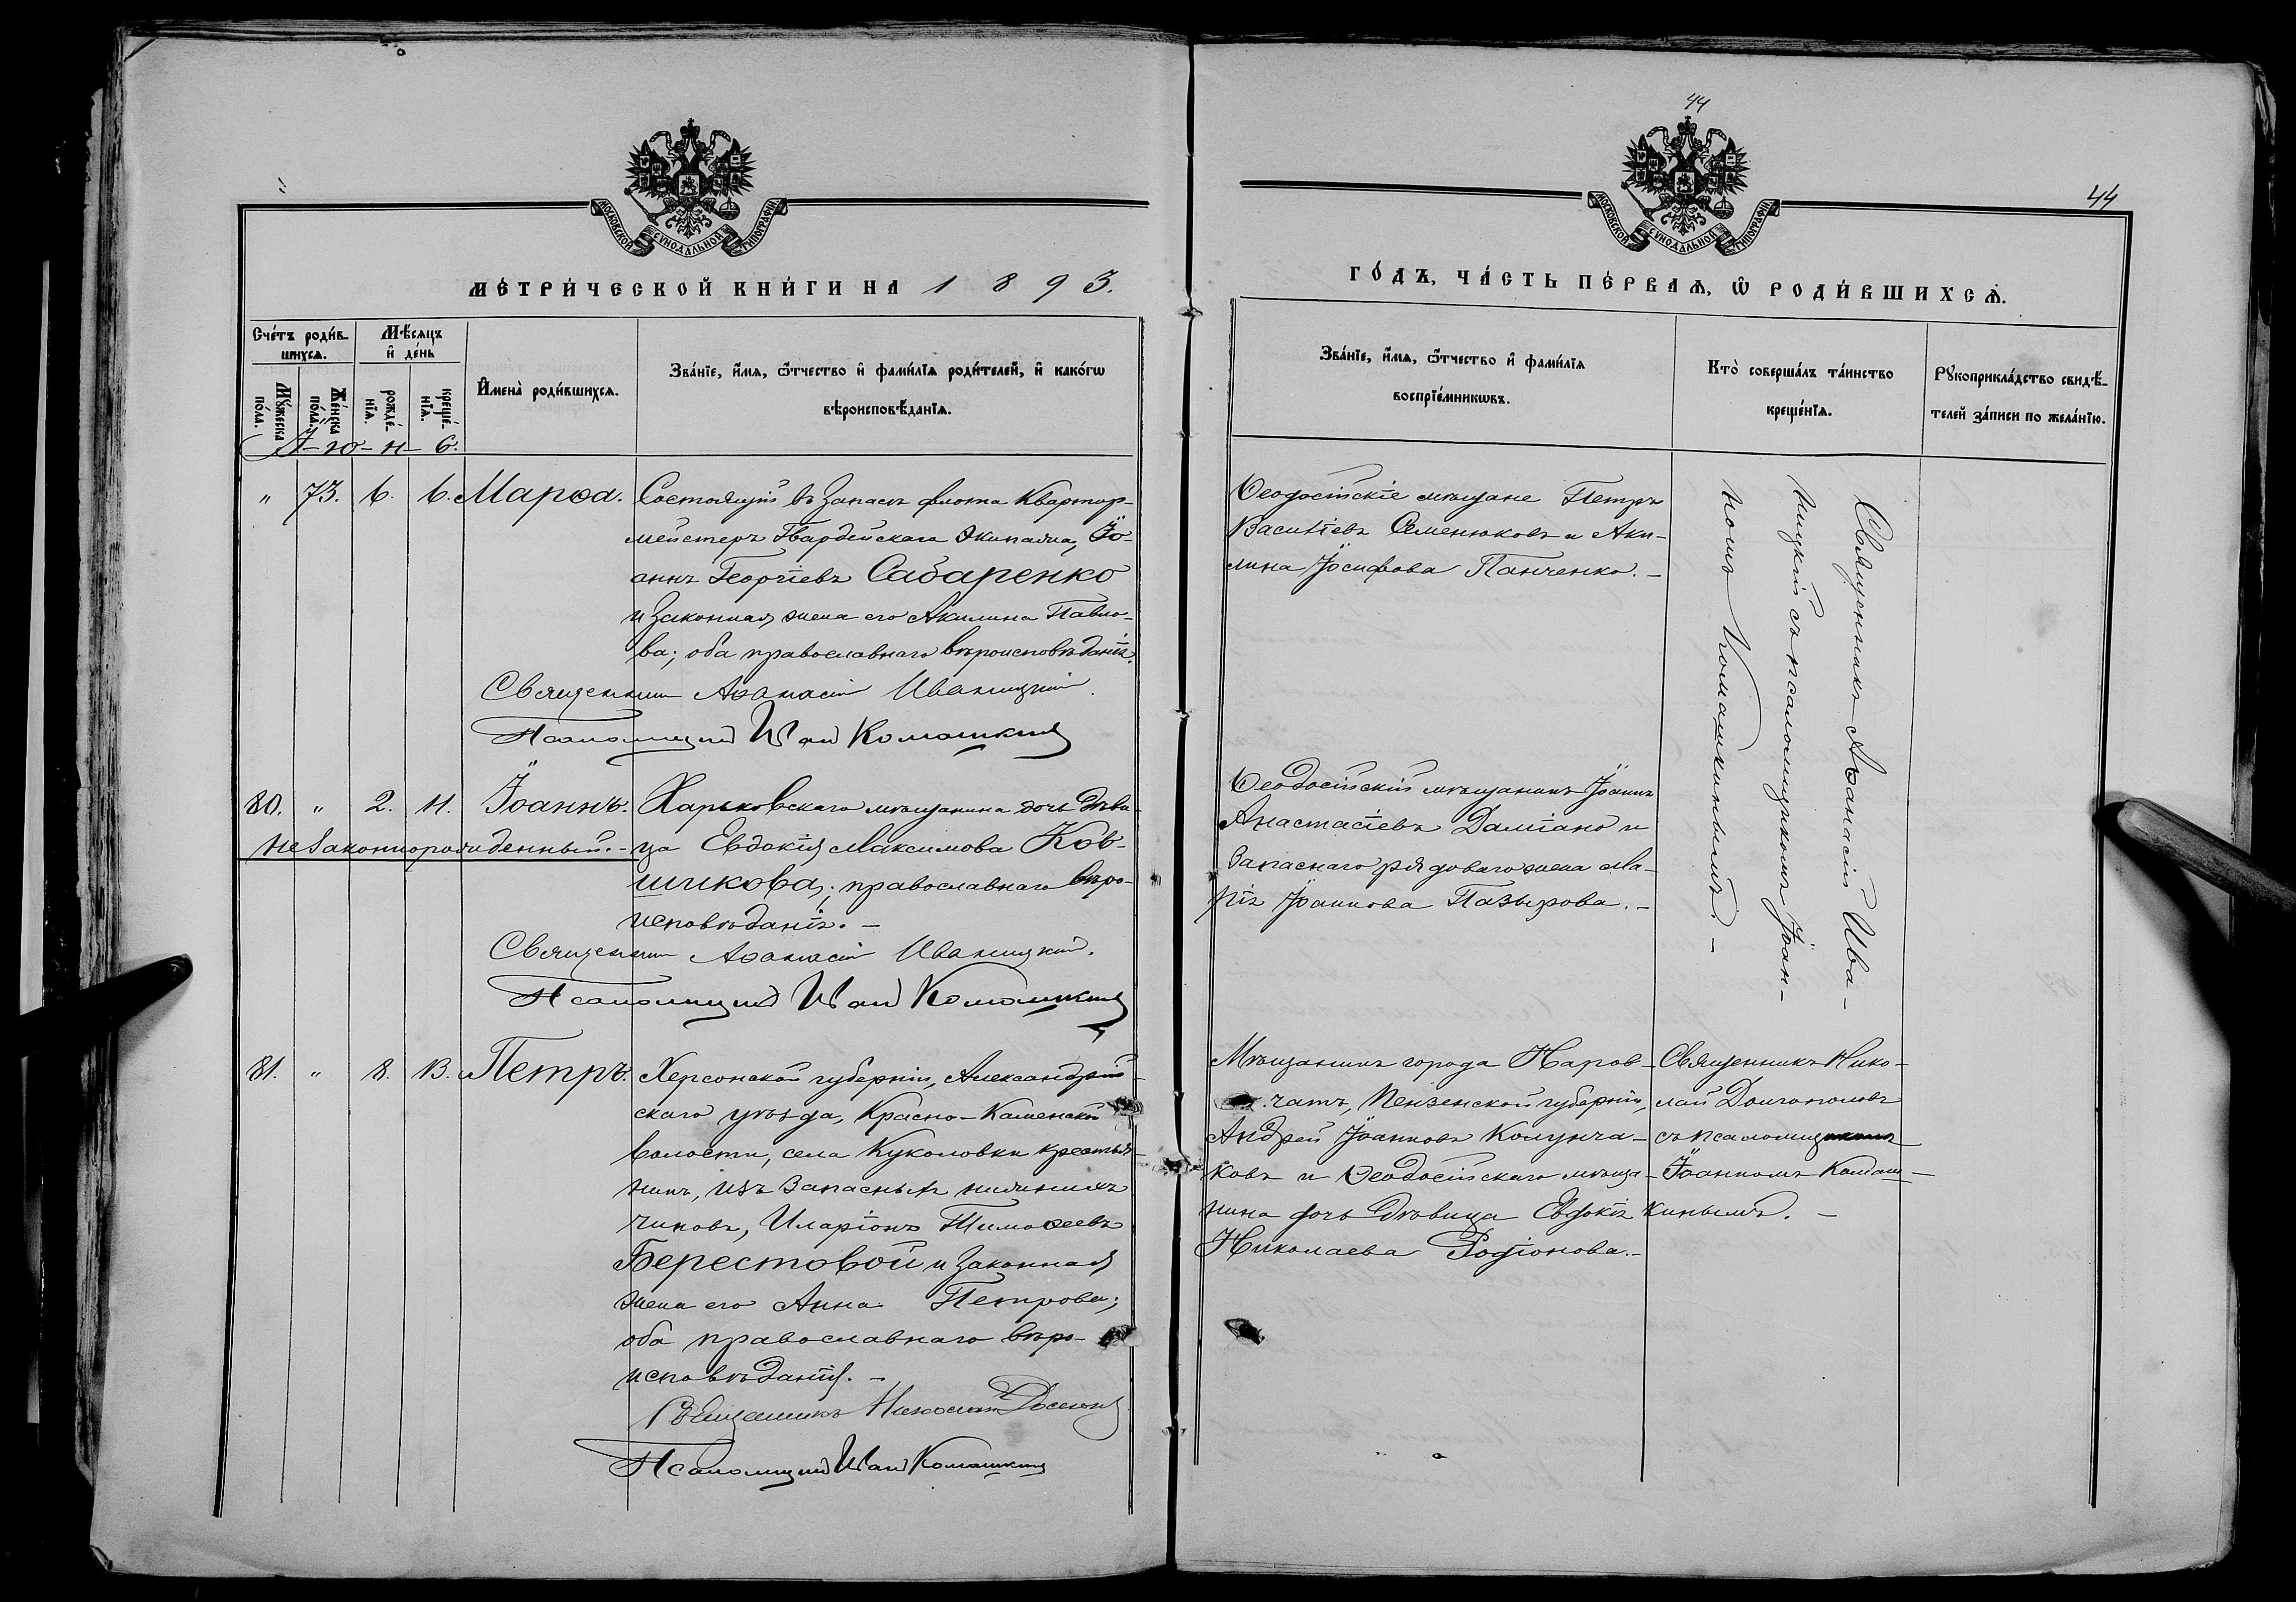 МОСКОВСКОЙ СѴНОДАЛЬНОЙ ТИПОГРАФІИ
МЕТРИ́ЧЕСКОЙ КНИ́ГИ НА 1893.
Сче́тъ роди́в-
шихсѧ.
Мѣ́сѧцъ
и҆ де́нь
Мꙋ́жеска
по́ла.
Же́нска
по́ла.
рожде́-
нїѧ.
креще́-
нїѧ.
И҆мена̀ роди́вшихсѧ.
Зва́нїе, и҆́мѧ, ѻ҆́тчество и҆ фами́лїѧ роди́телей, и҆ како́гѡ
вѣроисповѣ́данїѧ.
І-ю-н-ь.
" 73. 6. 6. Марѳа. Состоящій въ запасѣ флота Квартир-
мейстеръ Гвардейскаго Экипажа, Іо-
аннъ Георгіевъ Сабаренко
и законная жена его Акилина Павло-
ва; оба православнаго вѣроисповѣданія.
Священникъ Аѳанасій Иваницкій.
Псаломщикъ Иван Комашкинъ
80. " 2. 11. Іоаннъ. Харьковскаго мѣщанина дочь дѣви-
незаконнорожденный. - ца Евдокія Максимова Ков-
шикова; православнаго вѣро-
исповѣданія. -
Священникъ Аѳанасій Иваницкій.
Псаломщикъ Иван Комашкинъ
81. " 8. 13. Петръ. Херсонской губерніи, Александрій-
скаго уѣзда, Красно-Каменской
волости, села Куколовки крестья-
нинъ, изъ запасныхъ нижнихъ
чиновъ, Иларіонъ Тимоѳеевъ
Берестовой и законная
жена его Анна Петрова;
оба православнаго вѣро-
исповѣданія. -
Священникъ Николай
Псаломщикъ Иван Комашкинъ
44
МОСКОВСКОЙ СѴНОДАЛЬНОЙ ТИПОГРАФІИ
44
ГО́ДЪ, ЧА́СТЬ ПЕ́РВАѦ, Ѡ҆ РОДИ́ВШИХСѦ.
Зва́нїе, и҆́мѧ, ѻ҆́тчество и҆ фами́лїѧ
воспрїе́мникѡвъ.
Кто̀ соверша́лъ та́инство
креще́нїѧ.
Рꙋкоприкла́дство свидѣ́-
телей за́писи по жела́нїю.
Ѳеодосійскіе мѣщане Петръ
Василіевъ Семенюковъ и Аки-
лина Іосифова Панченко. -
Священникъ Аѳанасій Ива-
ницкій съ псаломщикомъ Іоан-
номъ Комашкинымъ. -
Ѳеодосійскій мѣщанинъ Іоаннъ
Анастасіевъ Даміано и
запаснаго рядоваго жена Ма-
рія Іоаннова Пазырова. -
Мѣщанинъ города Наров-
чатъ, Пензенской губерніи,
Андрей Іоанновъ Колунча-
ковъ и Ѳеодосійскаго мѣща-
нина дочь дѣвица Евдокія
Николаева Родіонова. -
Священникъ Нико-
лай Долгополовъ
съ псаломщикомъ
Іоанномъ Комаш-
кинымъ. -